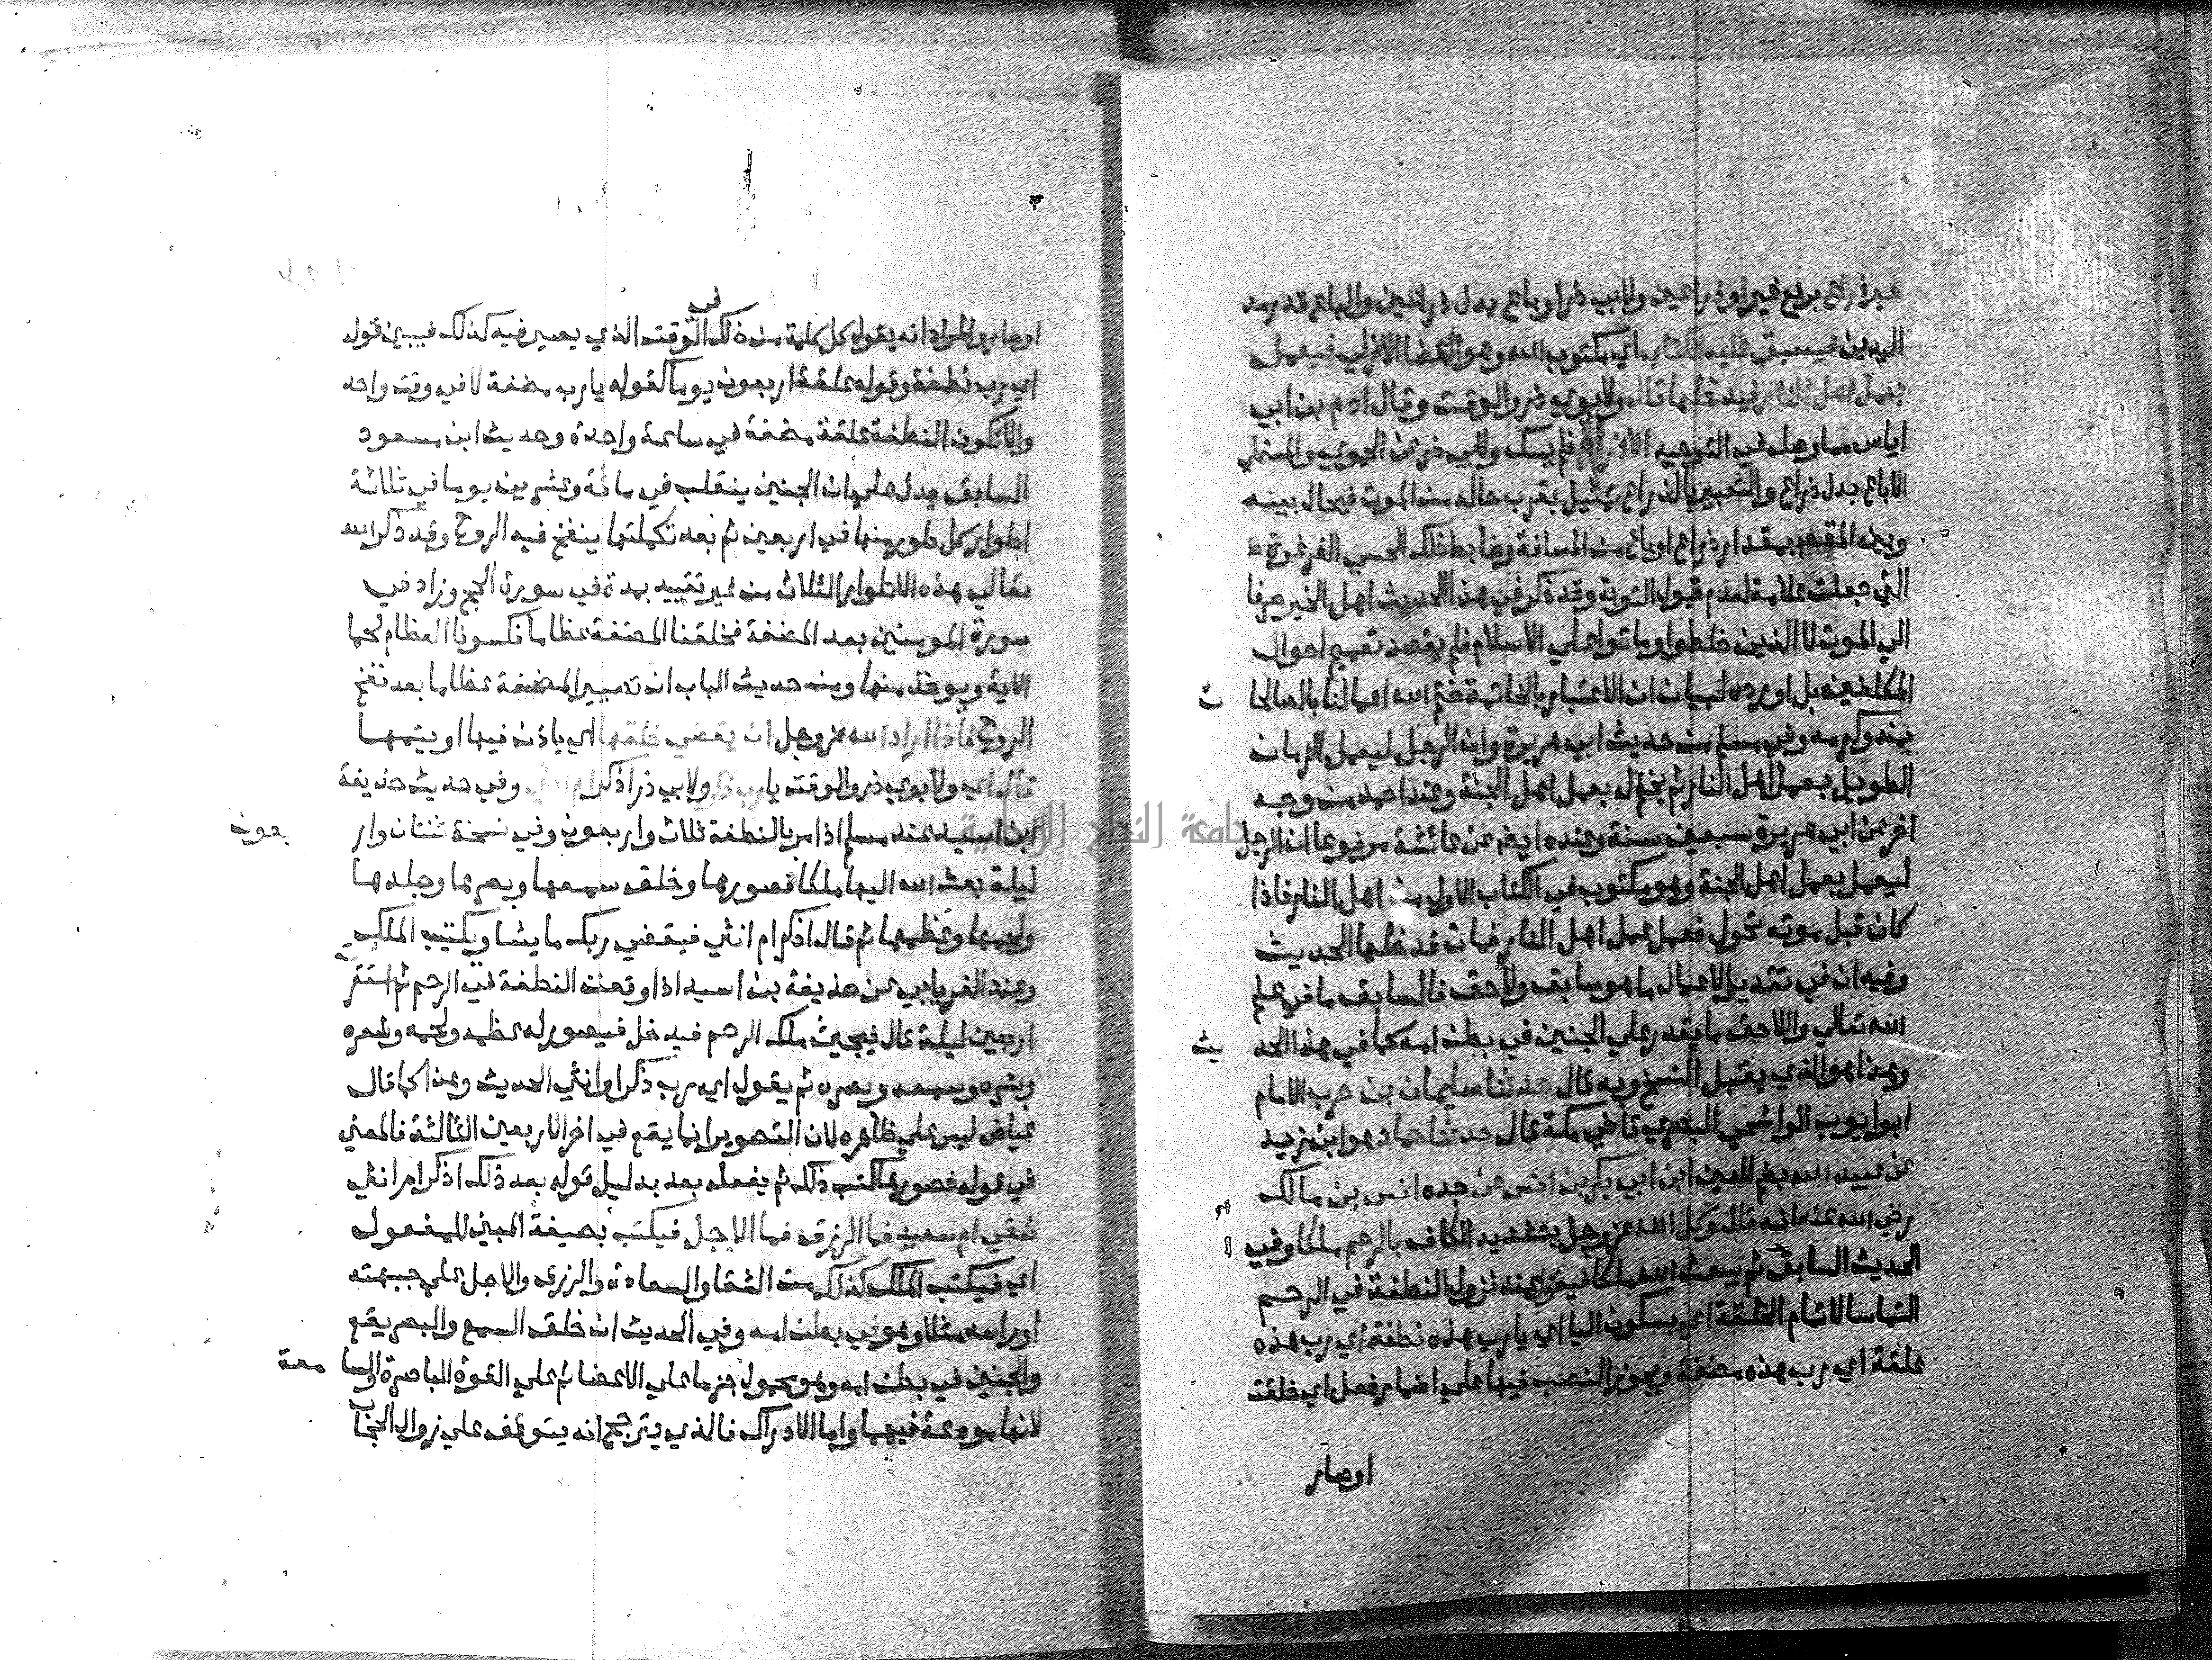 غير ذراع برفع غير او ذراعين ولابي ذر او باع بدل ذراعين والباع قدر مد
اليدين فيسبق عليه الكتاب اي مكتوب الله وهو القضا الازلي فيعمل
بعمل اهل النار فيدخلها قال ولابوي ذر والوقت وقال ادم بن ابي
اياس مما وصله في التوحيد الا ذراع فلم يسك ولابي ذر عن الحموي والمستملي
الا باع بدل ذراع والتعبير بالذراع تمثيل بقرب حاله من الموت فيحال بينه
وبين المقصد بمقدار ذراع او باع من المسافة وضابط ذلك الحسي الغرغرة
التي جعلت علامة لعدم قبول التوبة وقد ذكر في هذا الحديث اهل الخير صرفا
الي الموت لا الذين خلطوا وماتوا علي الاسلام فلم يقصد تعميم احوال
المكلفين بل اورده لبيان ان الاعتبار بالخاتمة ختم الله اعمالنا بالصالحا ت
بمنه وكرمه وفي مسلم من حديث ابي هريرة وان الرجل ليعمل الزمان
الطويل بعمل اهل النار ثم يختم له بعمل اهل الجنة وعند احمد من وجه
اخر عن ابي هريرة سبعين سنة وعنده ايضا عن عائشة مرفوعا ان الرجل
ليعمل بعمل اهل الجنة وهو مكتوب في الكتاب الاول من اهل النار فاذا
كان قبل موته تحول فعمل عمل اهل النار فمات فدخلها الحديث
وفيه ان في تقدير الاعمال ما هو سابق ولاحق فالسابق ما في علم
الله تعالي واللاحق ما يقدر علي الجنين في بطن امه كما في هذا الحد يث
وهذا هو الذي يقبل النسخ وبه قال حدثنا سليمان بن حرب الامام
ابو ايوب الواشحي البصري قاضي مكة قال حدثنا حماد هو ابن زيد
عن عبيد الله بضم العين ابن ابي بكر بن انس عن جده انس بن مالك
رضي الله عنه انه قال وكل الله عز وجل بتشديد الكاف بالرحم ملكا وفي
الحديث السابق ثم يبعث الله ملكا فيقول عند نزول النطفة في الرحم
التماسا لاتمام الخلقة اي بسكون اليا اي يا رب هذه نطفة اي رب هذه
علقة اي رب هذه مضغة ويجوز النصب فيها علي اضمار فعل اي خلقت
او صار
او صار والمراد انه يقول كل كلمة من ذلك في الوقت الذي يصير فيه كذلك فبين قوله
اي رب نطفة وقوله علقة اربعون يوما كقوله يا رب مضغة لا في وقت واحد
والا تكون النطفة علقة مضغة في ساعة واحدة وحديث ابن مسعود
السابق يدل علي ان الجنين ينقلب في مائة وعشرين يوما في ثلاثة
اطوار كل طور منها في اربعين ثم بعد تكملتها ينفخ فيه الروح وقد ذكر الله
تعالي هذه الاطوار الثلاث من غير تقييد بمدة في سورة الحج وزاد في
سورة المومنين بعد المضغة فخلقنا المضغة عظاما فكسونا العظام لحما
الاية ويوخذ منها ومن حديث الباب ان تصيير المضغة عظاما بعد نفخ
الروح فاذا اراد الله عز وجل ان يقضي خلقها اي ياذن فيها او يتمها
قال اي ولابوي ذر والوقت يا رب ذكر ولابي ذر اذكر ام انثي وفي حديث حذيفة
ابن اسيد عند مسلم اذا مر بالنطفة ثلاث واربعون وفي نسخة ثنتان وار بعون
ليلة بعث الله اليها ملكا فصورها وخلق سمعها وبصرها وجلدها
ولحمها وعظمها ثم قال اذكر ام انثي فيقضي ربك ما يشا ويكتب الملك
وعند الفريابي عن حذيفة بن اسيد اذا وقعت النطفة في الرحم ثم استقر
اربعين ليلة قال فيجيئ ملك الرحم فيدخل فيصور له عظمه ولحمه وشعره
وبشره وسمعه وبصره ثم يقول اي رب ذكر او انثي الحديث وهذا كما قال
عياض ليس علي ظاهره لان التصوير انما يقع في اخر الاربعين الثالثة فالمعني
في قوله فصورها كتب ذلك ثم يفعله بعد بدليل قوله بعد ذلك اذكر ام انثي
شقي ام سعيد فما الرزق فما الاجل فيكتب بصيغة المبني للمفعول
اي فيكتب الملك كذلك من الشقا والسعادة والرزق والاجل علي جبهته
او راسه مثلا وهو في بطن امه وفي الحديث ان خلق السمع والبصر يقع
والجنين في بطن امه وهو محمول جزما علي الاعضا ثم علي القوة الباصرة والسا معة
لانها مودعة فيهما واما الادراك فالذي يترجح انه يتوقف علي زوال الحجاب
جامعة النجاح الوطنية